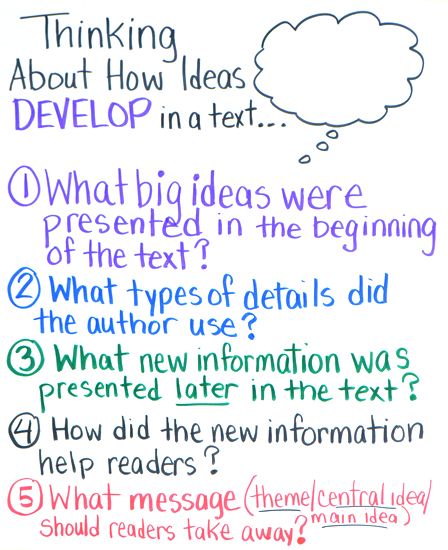 Thinking
About How Ideas
DEVELOP in a text...
① What big ideas were
presented in the beginning
of the text?
② What types of details did
the author use?
③ What new information was
presented later in the text?
④ How did the new information
help readers?
⑤ What message (theme/central idea/
main idea)
should readers take away?